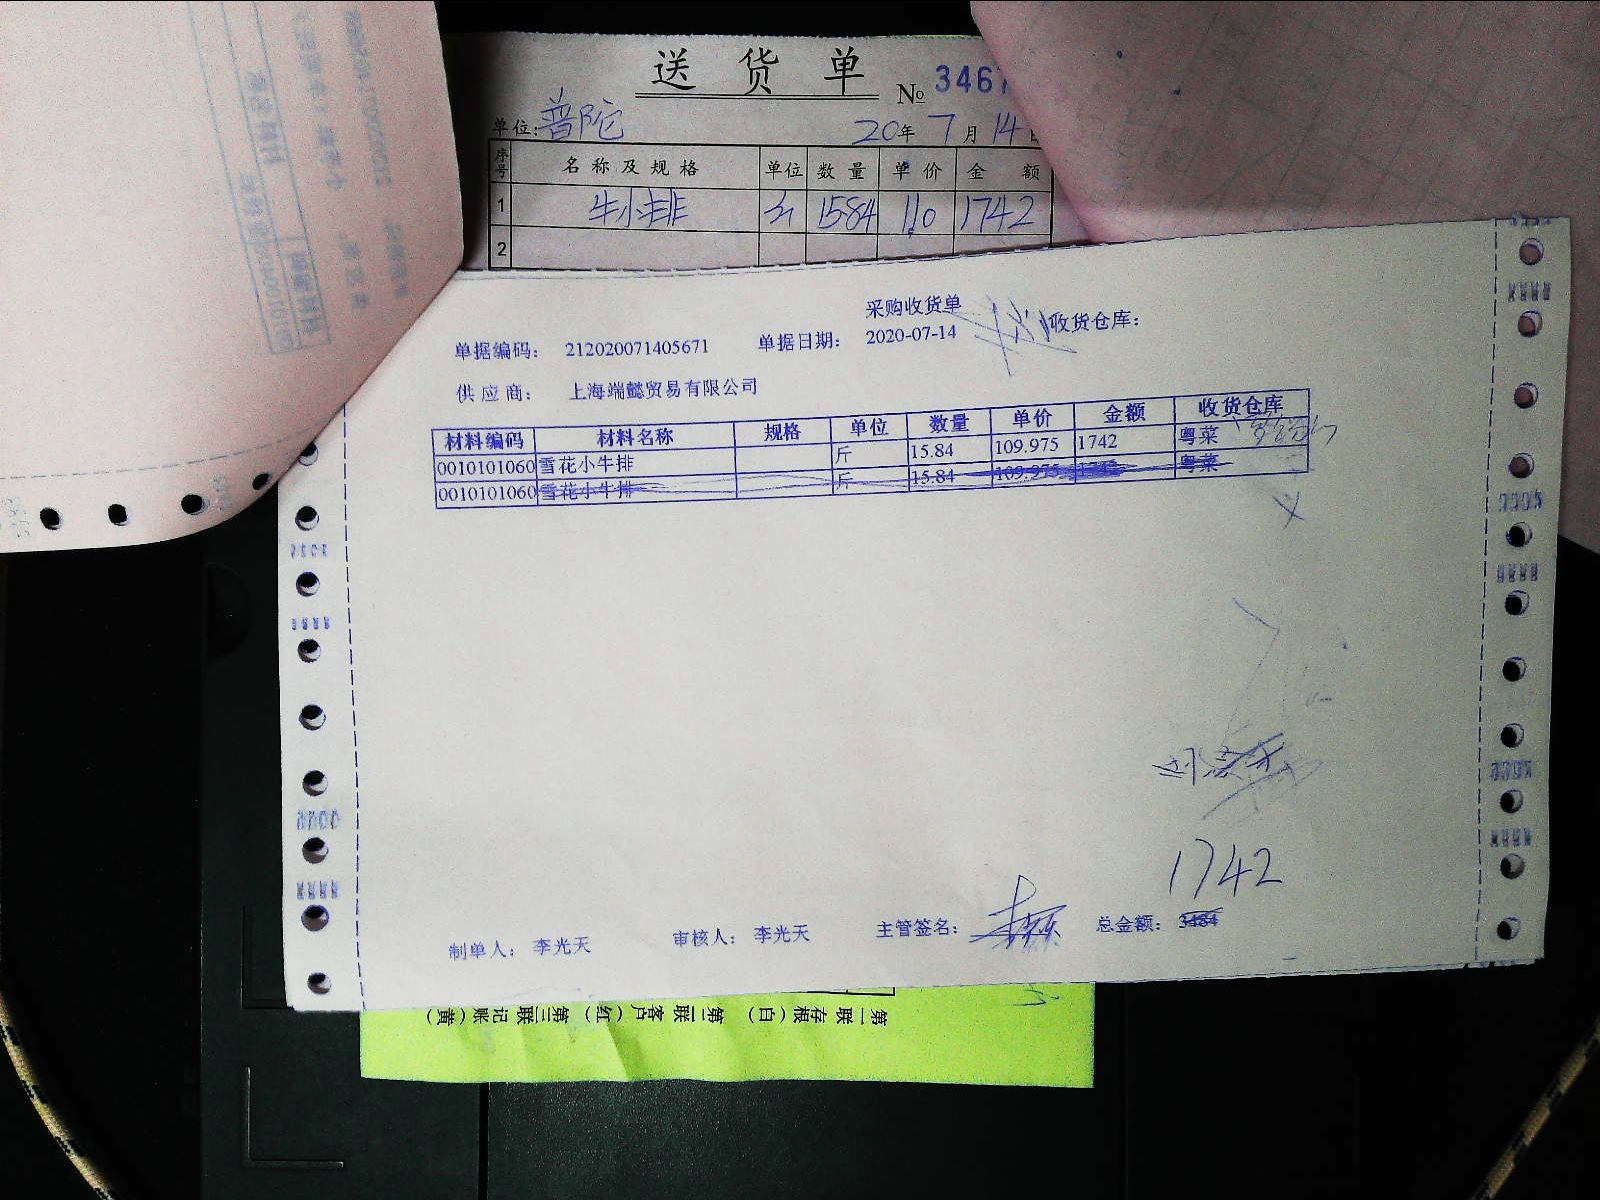 送货单
№ 3467
单位: 普陀 20年7月14日
序号 名称及规格 单位 数量 单价 金额
1 牛小排 斤 1584 110 1742
2
采购收货单
单据编码: 212020071405671 单据日期: 2020-07-14 收货仓库:
供应商: 上海端懿贸易有限公司
材料编码 材料名称 规格 单位 数量 单价 金额 收货仓库
0010101060 雪花小牛排 斤 15.84 109.975 1742 粤菜
0010101060 雪花小牛排 斤 15.84 109.975 1742 粤菜
1742
制单人: 李光天 审核人: 李光天 主管签名: 总金额: 3484
第一联 存根（白） 第二联 客户（红） 第三联 记账（黄）